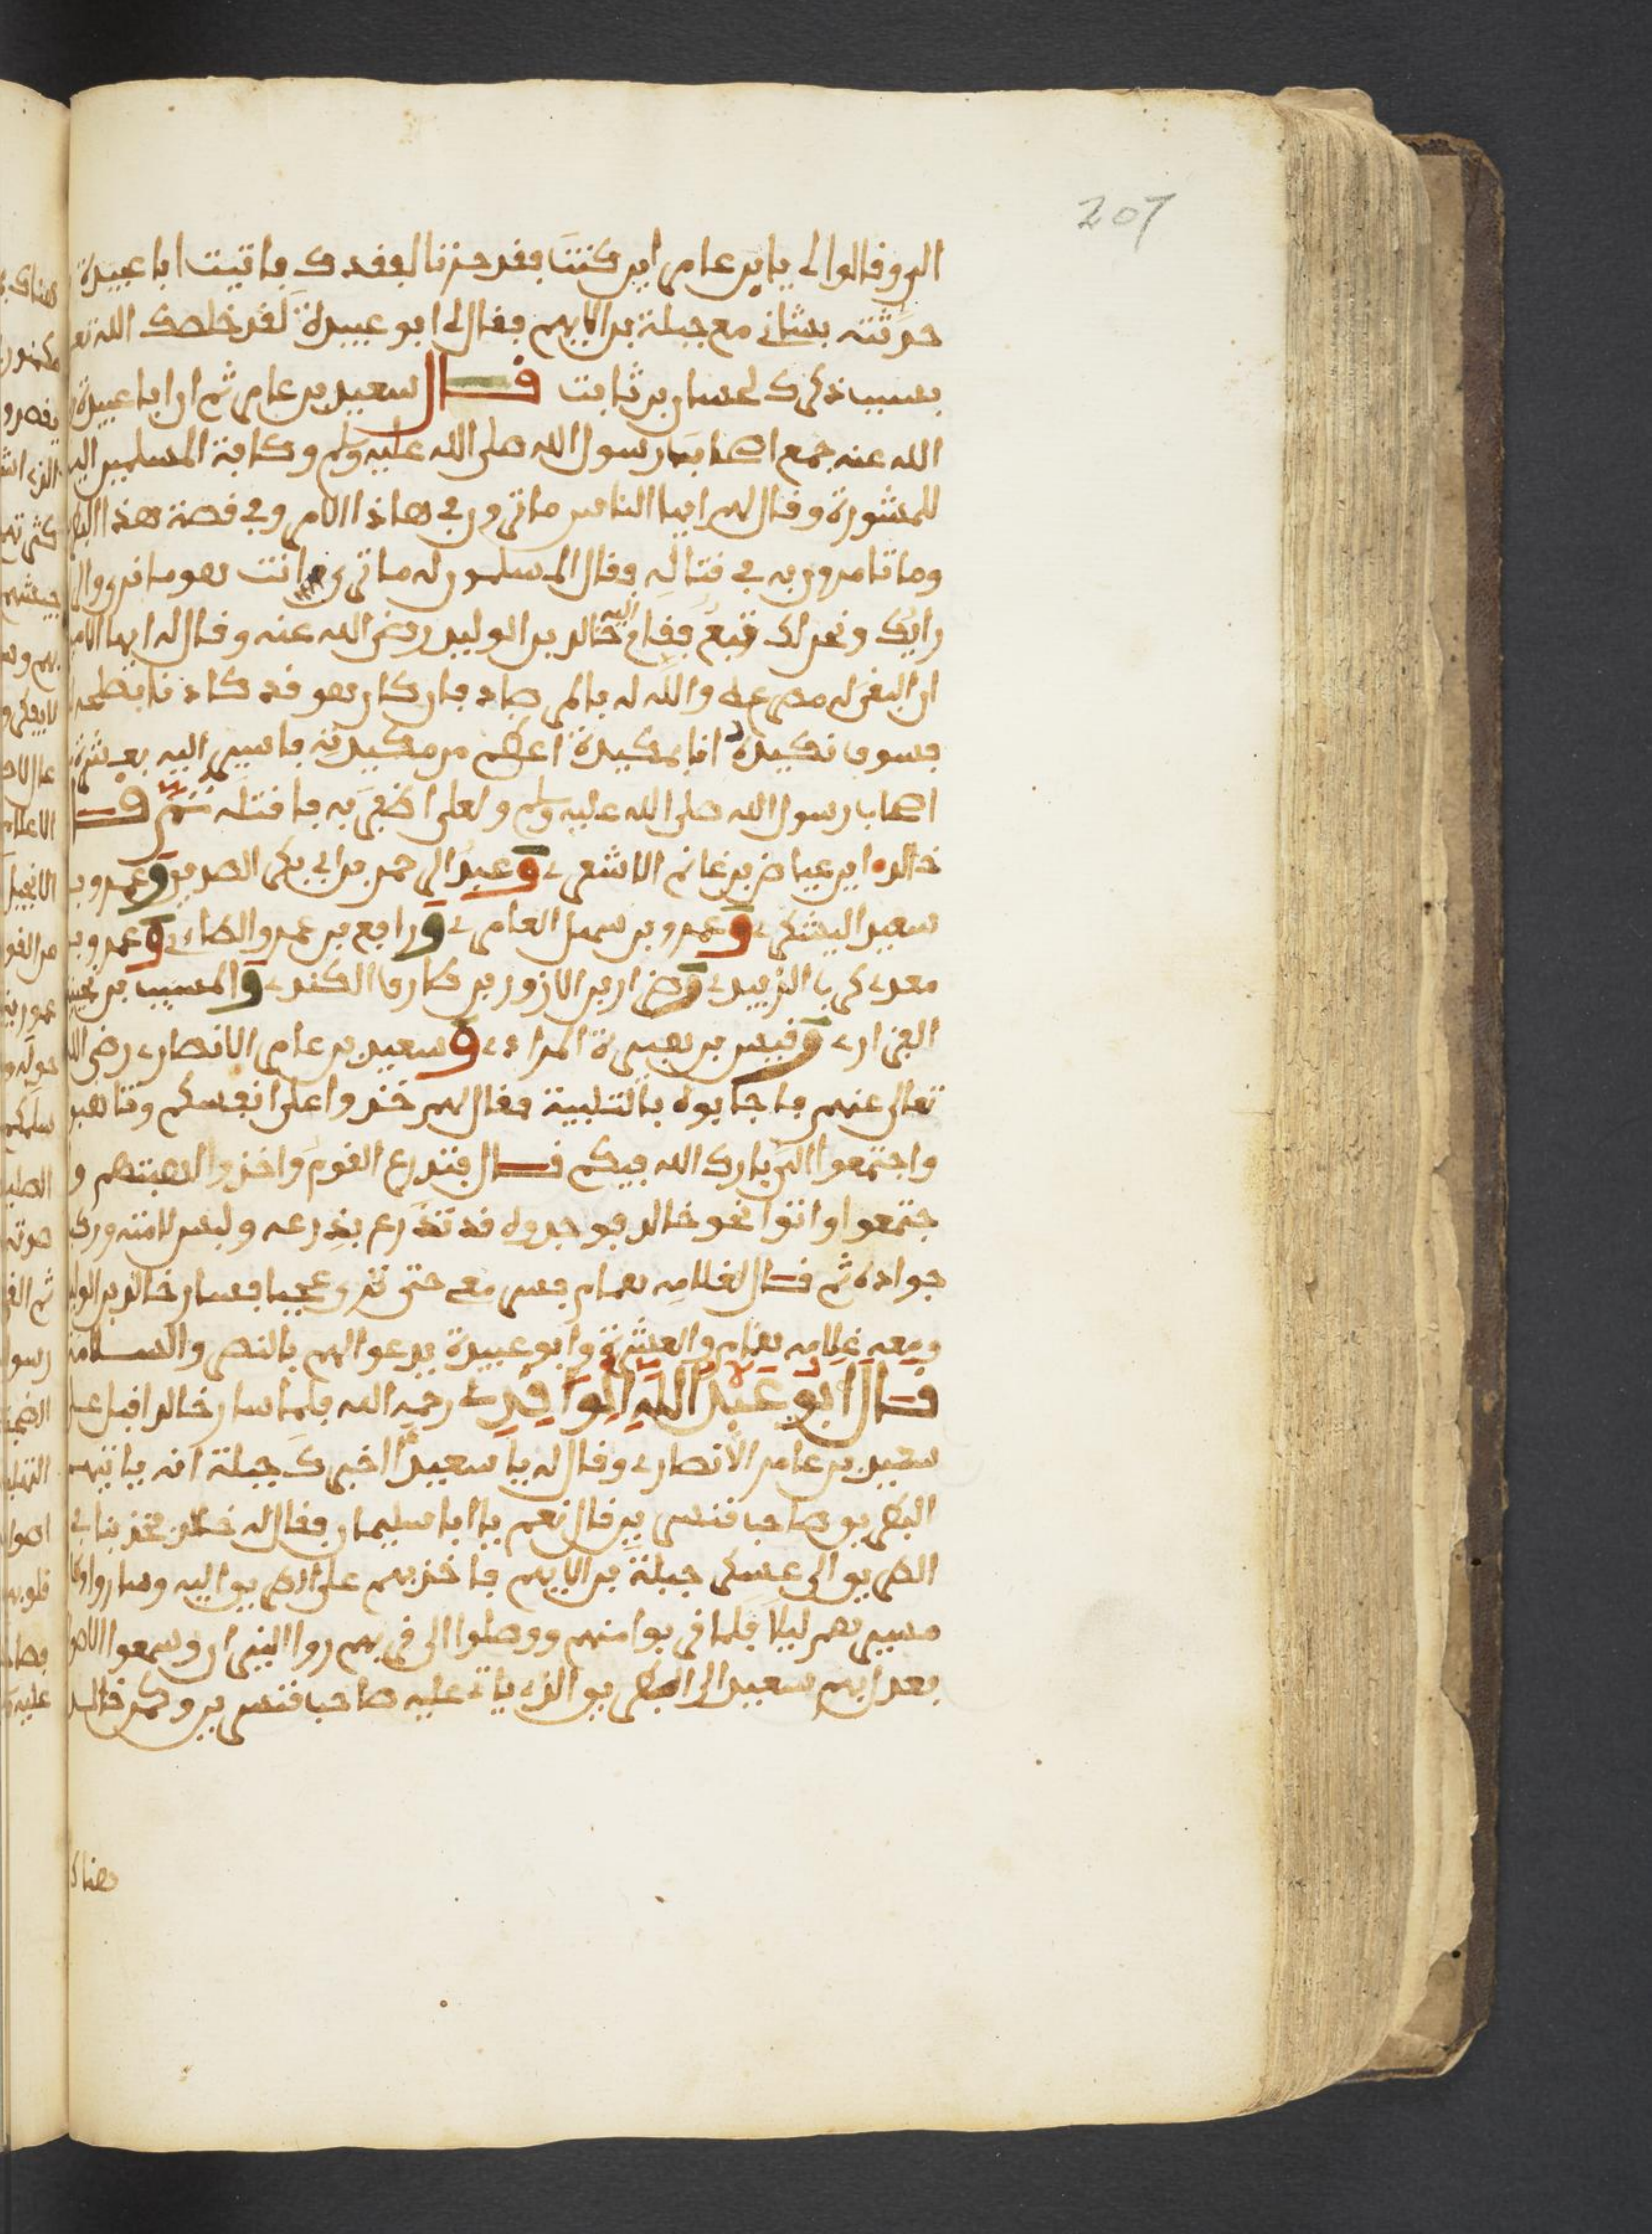 207
الي وقالوا لي يابن عامر اين كنت فقد حزنا لفقدك فاتيت ابا عبيدة
حدثته بشاني مع جبلة بن الايهم فقال لي ابو عبيدة لقد خلصك الله تعـ
بسبب ذكرك لحسان بن ثابت قال سعيد بن عامر ثم ان ابا عبيدة
الله عنه جمع اصحاب رسول الله صلى الله عليه وسلم وكافة المسلمين اليه
للمشورة وقال لهم ايها الناس ما ترون في هاذا الامر وفي قصة هذا
وما تامرون به في قتاله فقال المسلمون له ما ترى انت فهو
رايك ونحن لك تبع فقام اليه خالد بن الوليد رضي الله عنه وقال له ايها الامير
ان البغي له مصرعة والله له بالمرصاد فان كان هو قد كادنا
فسوف نكيده انا بمكيدة اعظم من مكيدته فاسير اليه بعشرة
اصحاب رسول الله صلى الله عليه وسلم ولعلي اظفر به فاقتله ثم قـال
خالد اين عياض بن غانم الاشعري وعبد الرحمن بن ابي بكر الصديق وعمرو بـ
سعيد اليشكري وعمرو بن سهل العامري ورافع بن عمرو الطاءي وعمرو بـ
معدي كرب الزبيدي وضرار بن الازور بن طارق الكندي والمسيب بن نجيبـ
الفزاري وقيس بن هبيرة المرادي وسعيد بن عامر الانصاري رضي الله
تعالى عنهم فاجابوه بالتلبية فقال لهم خذوا على انفسكم وتاهبو
واجتمعوا الي بارك الله فيكم قـال فتدرع القوم واخذوا اهبتهم وا
جتمعوا واتوا نحو خالد فوجدوه قد تدرع بدرعه ولبس لامته وركب
جواده ثم قال لغلامه همام فسر معي حتى ترى عجبا فسار خالد بن الوليد
ومعه غلامه همام والعشرة وابو عبيدة يدعو الهم بالنصر والسلامة
قال ابو عبد الله الواقدي رحمه الله فلما سار خالد اقبل على
سعيد بن عامر الانصاري وقال له يا سعيد ااخبرك جبلة انه ياتيهم
البطريق صاحب قنسرين قال نعم يا ابا سليمان فقال له خالد فخذ بنا في
الطريق الى عسكر جبلة بن الايهم فاخذ بهم على الطريق اليه وساروا وكا
مسيرهم ليلا فلما قربوا منهم ووصلوا الى قربهم روا النيران وسمعوا الاصوا
بعد ايهم سعيد الى الطريق الذي ياتي عليه صاحب قنسرين وكمن خالد
هناك